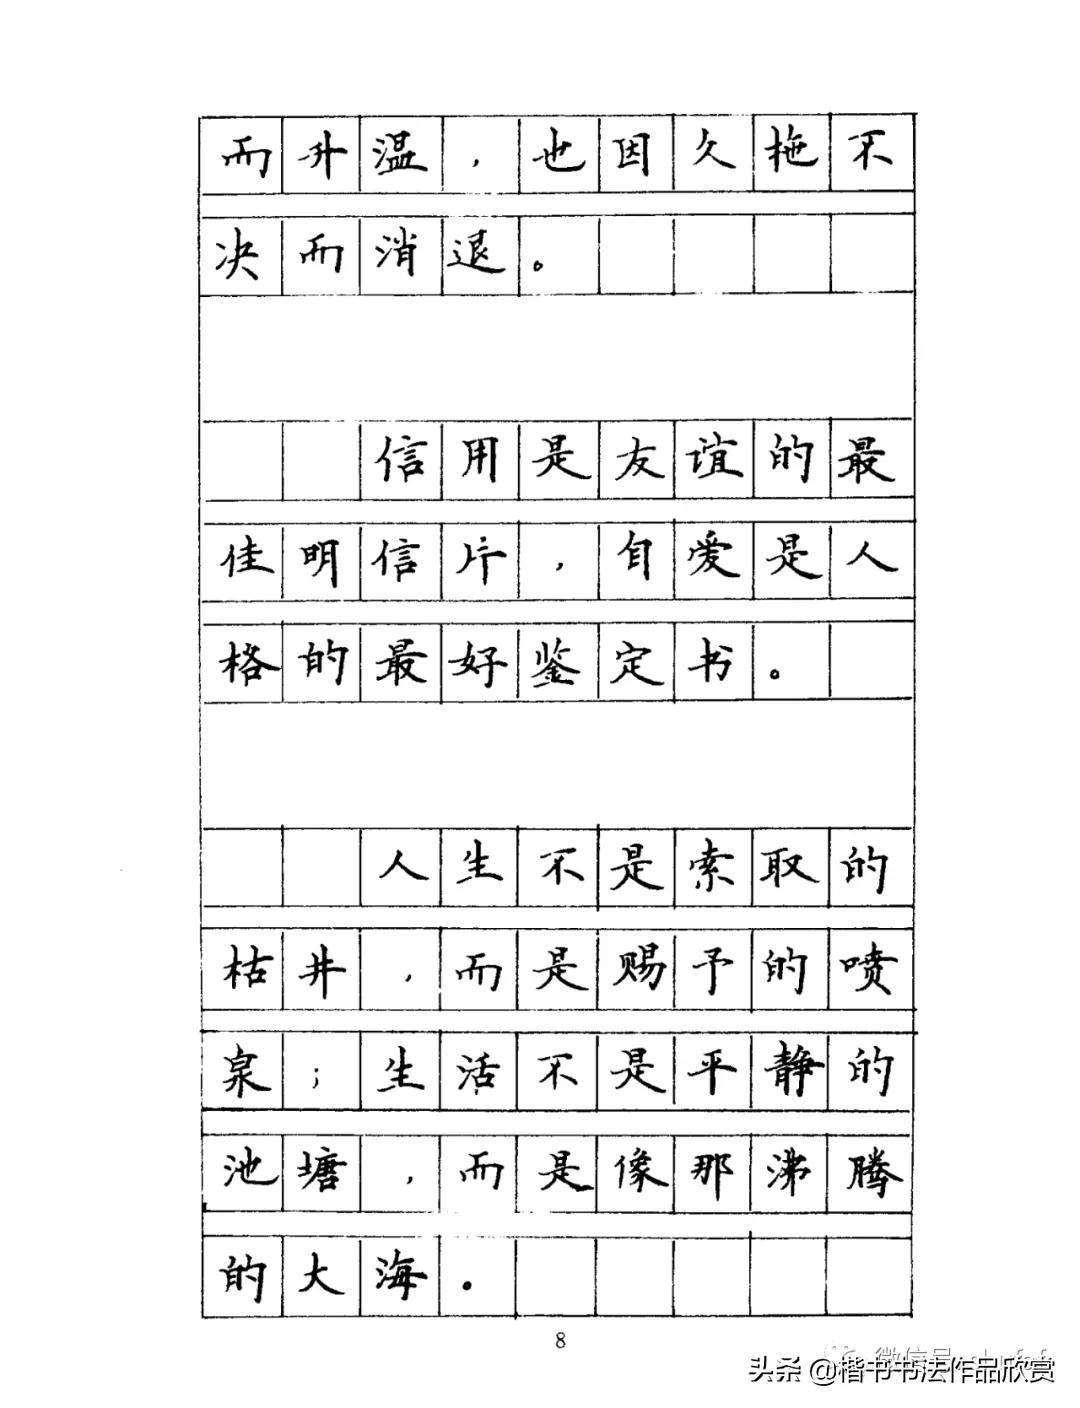 而升温，也因久拖不
决而消退。
信用是友谊的最
佳明信片，自爱是人
格的最好鉴定书。
人生不是索取的
枯井，而是赐予的喷
泉；生活不是平静的
池塘，而是像那沸腾
的大海。
8
微信号
头条 @楷书书法作品欣赏